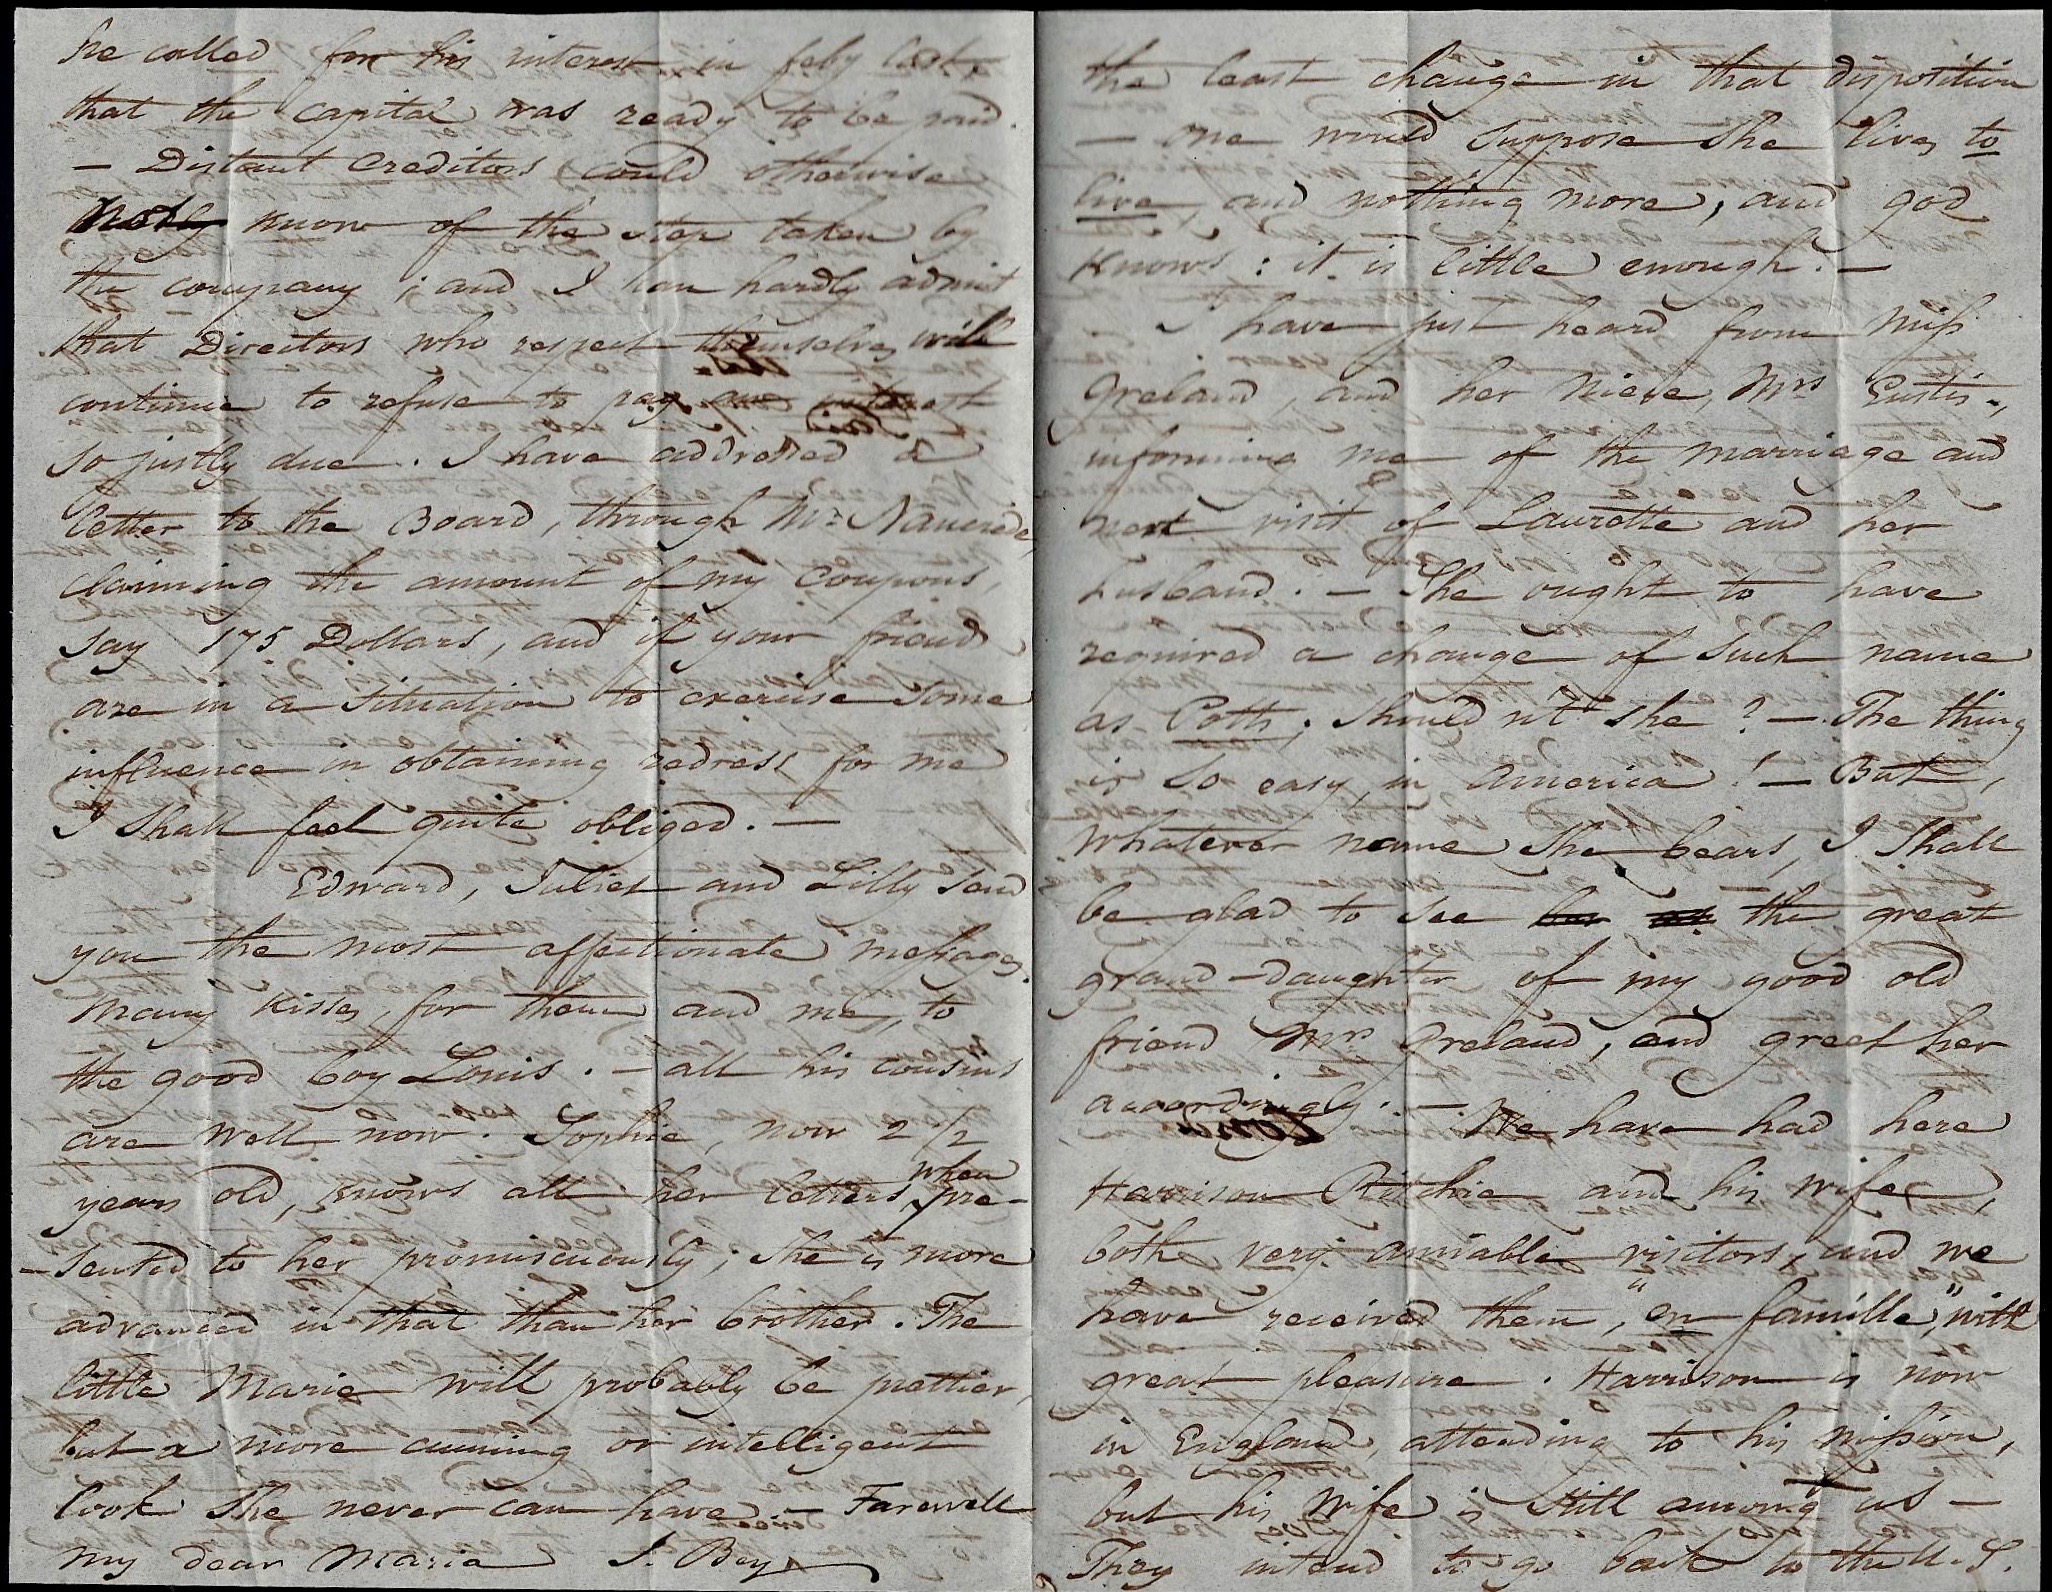 he called for his interest in feby last,
that the capital was ready to be paid.
— Distant Creditors could otherwise
know of the step taken by
the company; and I can hardly admit
that Directors who respect themselves will
continue to refuse to pay an interest
so justly due. I have addressed a
letter to the Board, through Mr.
claiming the amount of my coupons,
say 175 Dollars, and if your friends
are in a situation to exercise some
influence in obtaining redress for me
I shall feel quite obliged. —
Edward, Juliet and Lilly send
you the most affectionate messages.
Many kisses, for them and me, to
the good boy Louis. — all his cousins
are well now. Sophie, now 2 1/2
years old, knows all her letters when pre-
-sented to her promiscuously; she is more
advanced in that than her brother. The
little Marie will probably be prettier,
but a more cunning or intelligent
look she never can have — Farewell
my dear Maria J. Bey
the least change in that disposition
— one would suppose she lives to
live and nothing more, and god
knows: it is little enough. —
I have just heard from Miss
Greland, and her niece, Mrs Eustis,
informing me of the marriage and
next visit of Laurette and her
husband. — She ought to have
required a change of such name
as Potts; should n't she? — The thing
is so easy, in America! — But,
whatever name she bears, I shall
be glad to see her as the great
grand-daughter of my good old
friend Mrs Greland, and greet her
accordingly. — We have had here
Harrison Ritchie and his wife,
both very amiable visitors, and we
have received them, "en famille", with
great pleasure. Harrison is now
in England, attending to his mission,
but his wife is still among us —
They intend to go back to the U.S.